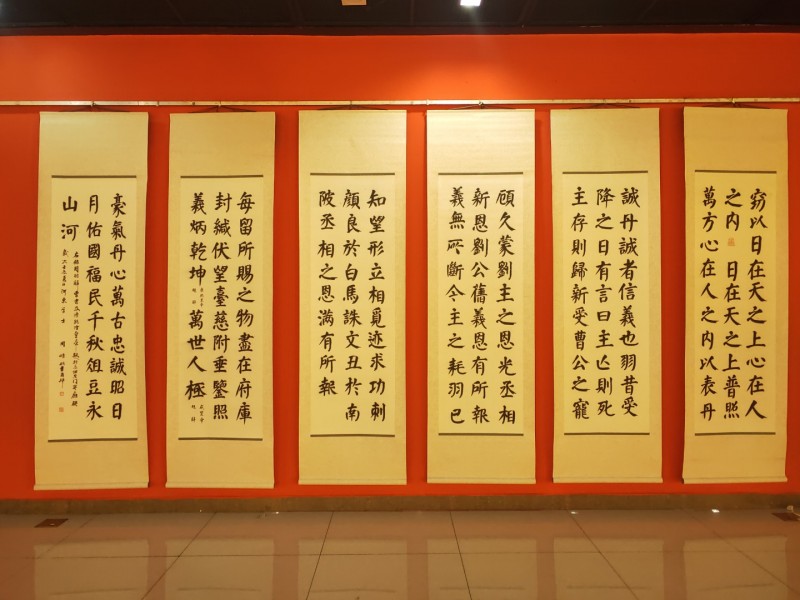 窃以日在天之上心在人
之内 日在天之上普照
萬方心在人之内以表丹
誠丹誠者信義也羽昔受
降之日有言曰主亡則死
主存則歸新受曹公之寵
頋久蒙劉主之恩光丞相
新恩劉公舊義恩有所報
義無所斷今主之耗羽已
知望形立相覓迹求功刺
顔良於白馬誅文丑於南
陂丞相之恩满有所報
每留所賜之物盡在府庫
封緘伏望臺慈附垂鑒照
義炳乾坤
萬世人極
豪氣丹心萬古忠誠昭日
月佑國福民千秋俎豆永
山河